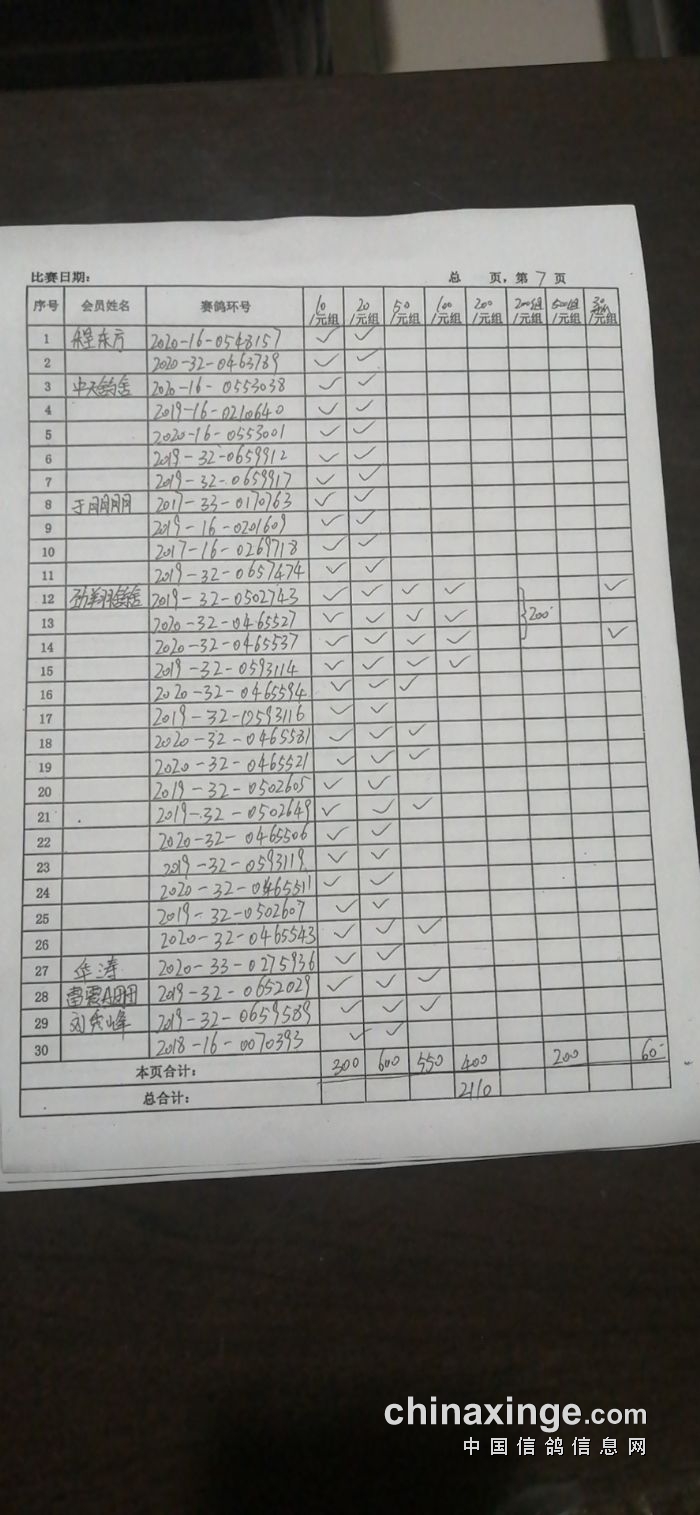 比赛日期: 总 页,第 7 页
序号 会员姓名 赛鸽环号 10/元组 20/元组 50/元组 100/元组 200/元组 200组/元组 500组/元组 30/元组
1 程东方 2020-16-0548157 ✓ ✓
2 2020-32-0463789 ✓ ✓
3 中天鸽舍 2020-16-0553038 ✓ ✓
4 2019-16-0210640 ✓ ✓
5 2020-16-0553001 ✓ ✓
6 2019-32-0659912 ✓ ✓
7 2019-32-0659917 ✓ ✓
8 于朋朋 2017-33-0170763 ✓ ✓
9 2019-16-0201609 ✓ ✓
10 2017-16-0269718 ✓ ✓
11 2019-32-0657474 ✓ ✓
12 劲翔鸽舍 2019-32-0502743 ✓ ✓ ✓ ✓ ✓
13 2020-32-0465527 ✓ ✓ ✓ ✓ 200
14 2020-32-0465537 ✓ ✓ ✓ ✓ ✓
15 2019-32-0593114 ✓ ✓ ✓ ✓
16 2020-32-0465594 ✓ ✓ ✓
17 2019-32-0593116 ✓ ✓
18 2020-32-0465581 ✓ ✓ ✓
19 2020-32-0465521 ✓ ✓ ✓
20 2019-32-0502605 ✓ ✓
21 2019-32-0502649 ✓ ✓ ✓
22 2020-32-0465506 ✓ ✓
23 2019-32-0593119 ✓ ✓
24 2020-32-0465511 ✓ ✓
25 2019-32-0502607 ✓ ✓
26 2020-32-0465543 ✓ ✓ ✓
27 牟涛 2020-33-0275936 ✓ ✓
28 雷震A 2019-32-0652029 ✓ ✓ ✓
29 刘秀峰 2019-32-0659589 ✓ ✓ ✓
30 2018-16-0070393 ✓ ✓
本页合计: 300 600 550 400 200 60
总合计: 2110
chinaxinge.com
中国信鸽信息网